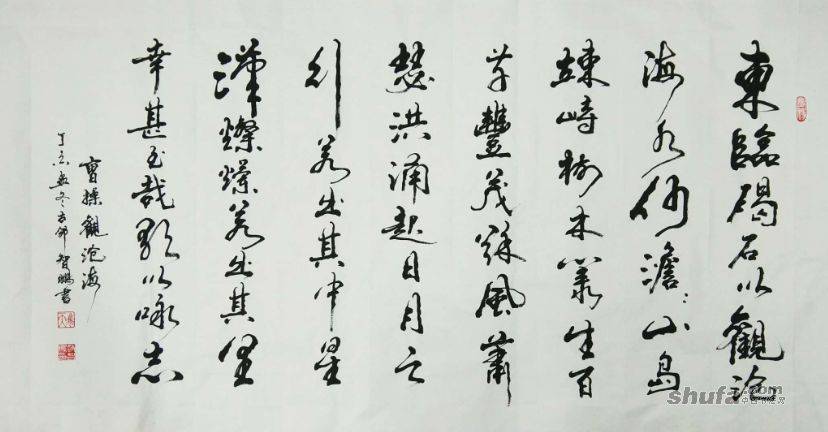 東臨碣石以觀滄
海水何澹々山島
竦峙樹木叢生百
草豐茂秋風蕭
瑟洪涌起日月之
行若出其中星
漢燦爛若出其里
幸甚至哉歌以咏志
曹操觀滄海
丁亥孟冬智鵬書
shufa.com